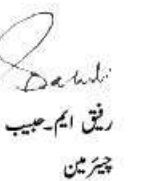 رفیق ایم۔حبیب
چیئرمین